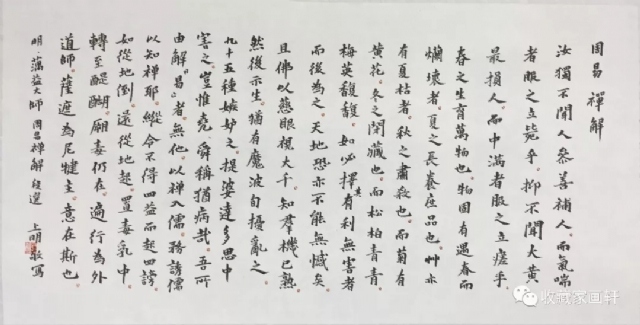 周易禪解
汝獨不聞人參善補人。而氣喘
者服之立斃乎。抑不聞大黃
最損人。而中滿者服之立瘥乎。
春之生育萬物也。物固有遇春而
爛壞者。夏之長養庶品也。艸亦
有夏枯者。秋之肅殺也。而菊有
黃花。冬之閉藏也。而松柏青青。
梅英馥馥。如必擇其有利無害者
而後為之。天地恐亦不能無憾矣。
且佛以慈眼視大千。知羣機已熟。
然後示生。猶有魔波旬擾亂之。
九十五種嫉妒之。提婆達多思中
害之。豈惟堯舜稱猶病哉。吾所
由解易者無他。以禪入儒。務誘儒
以知禪耳。縱令不得四益而起四謗。
如從地倒。還從地起。置毒乳中。
轉至醍醐。厥毒仍在。遍行為外
道師。薩遮為尼犍主。意在斯也。
明·蕅益大師 周易禪解 段選 上明 敬寫
收藏家画轩